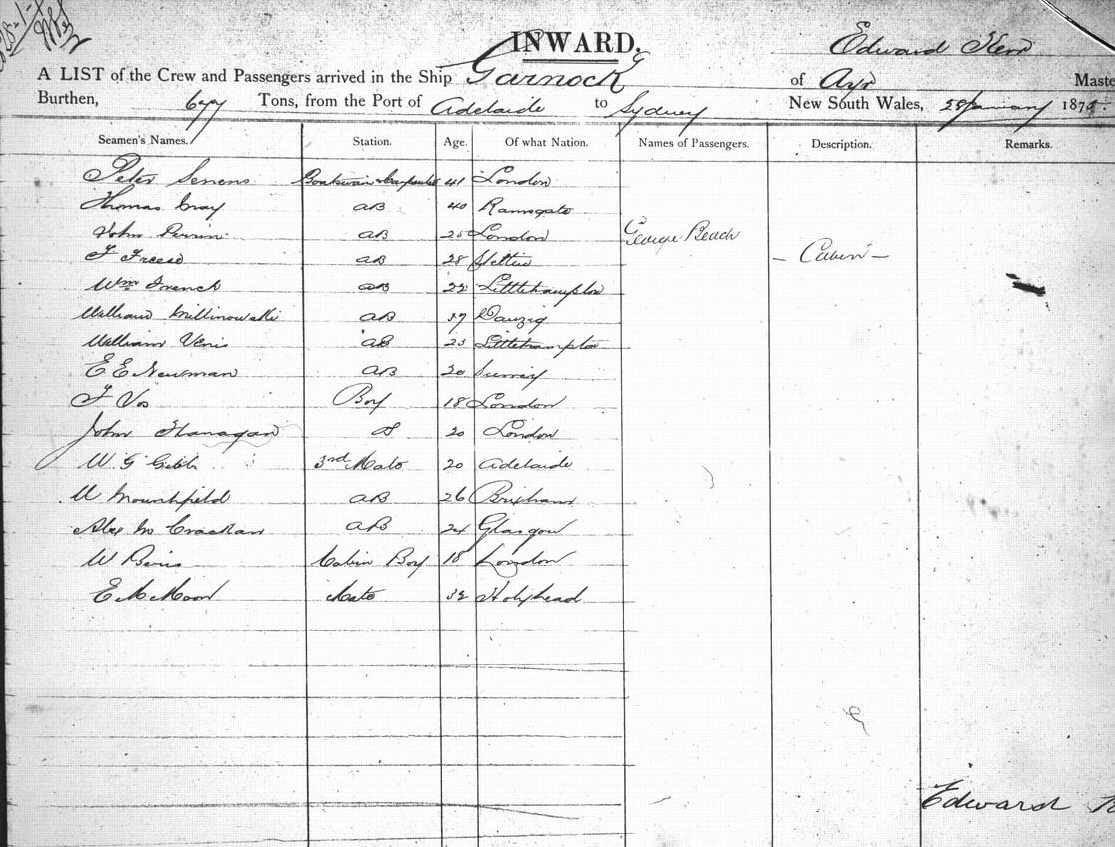 INWARD.
Edward Kerr
A LIST of the Crew and Passengers arrived in the Ship Garnock of Ayr Maste
Burthen, 677 Tons, from the Port of Adelaide to Sydney New South Wales, 28 January 187
Seamen's Names. Station. Age. Of what Nation. Names of Passengers. Description. Remarks.
Peter 41 London
Thomas Gray AB 40 Ramsgate
John Perrin AB 25 London
George Beach
F AB 28
— Cabin —
Wm French AB 22 Littlehampton
William AB 37 Danzig
William Venis AB 23 Littlehampton
E E Newman AB 20 Surrey
F Vos Boy 18 London
John Flanagan 20 London
W. G Gibb 3rd Mate 20 Adelaide
W Mounthfield AB 26 Brixham
Alex Mc Crackan AB 24 Glasgow
W Cabin Boy 18 London
E M Moon Mate 32 Holyhead
Edward